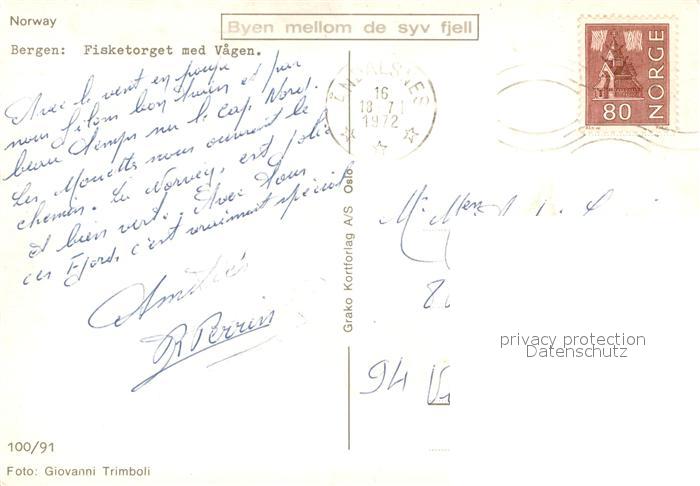 Norway
Byen mellom de syv fjell
Bergen: Fisketorget med Vågen.
Avec le vent en poupe
nous filons bon train et par
beau temps sur le cap Nord.
Les Mouettes nous ouvrent le
chemin. La Norvég, est jolie
et bien vert. Avec tous
ces Fjords c'est vraiment spécial
Amitiés
R Perrin
100/91
Foto: Giovanni Trimboli
Grako Kortforlag A/S Oslo
ÅNDALSNES
16
18 7
1972
NORGE
80
94
privacy protection
Datenschutz